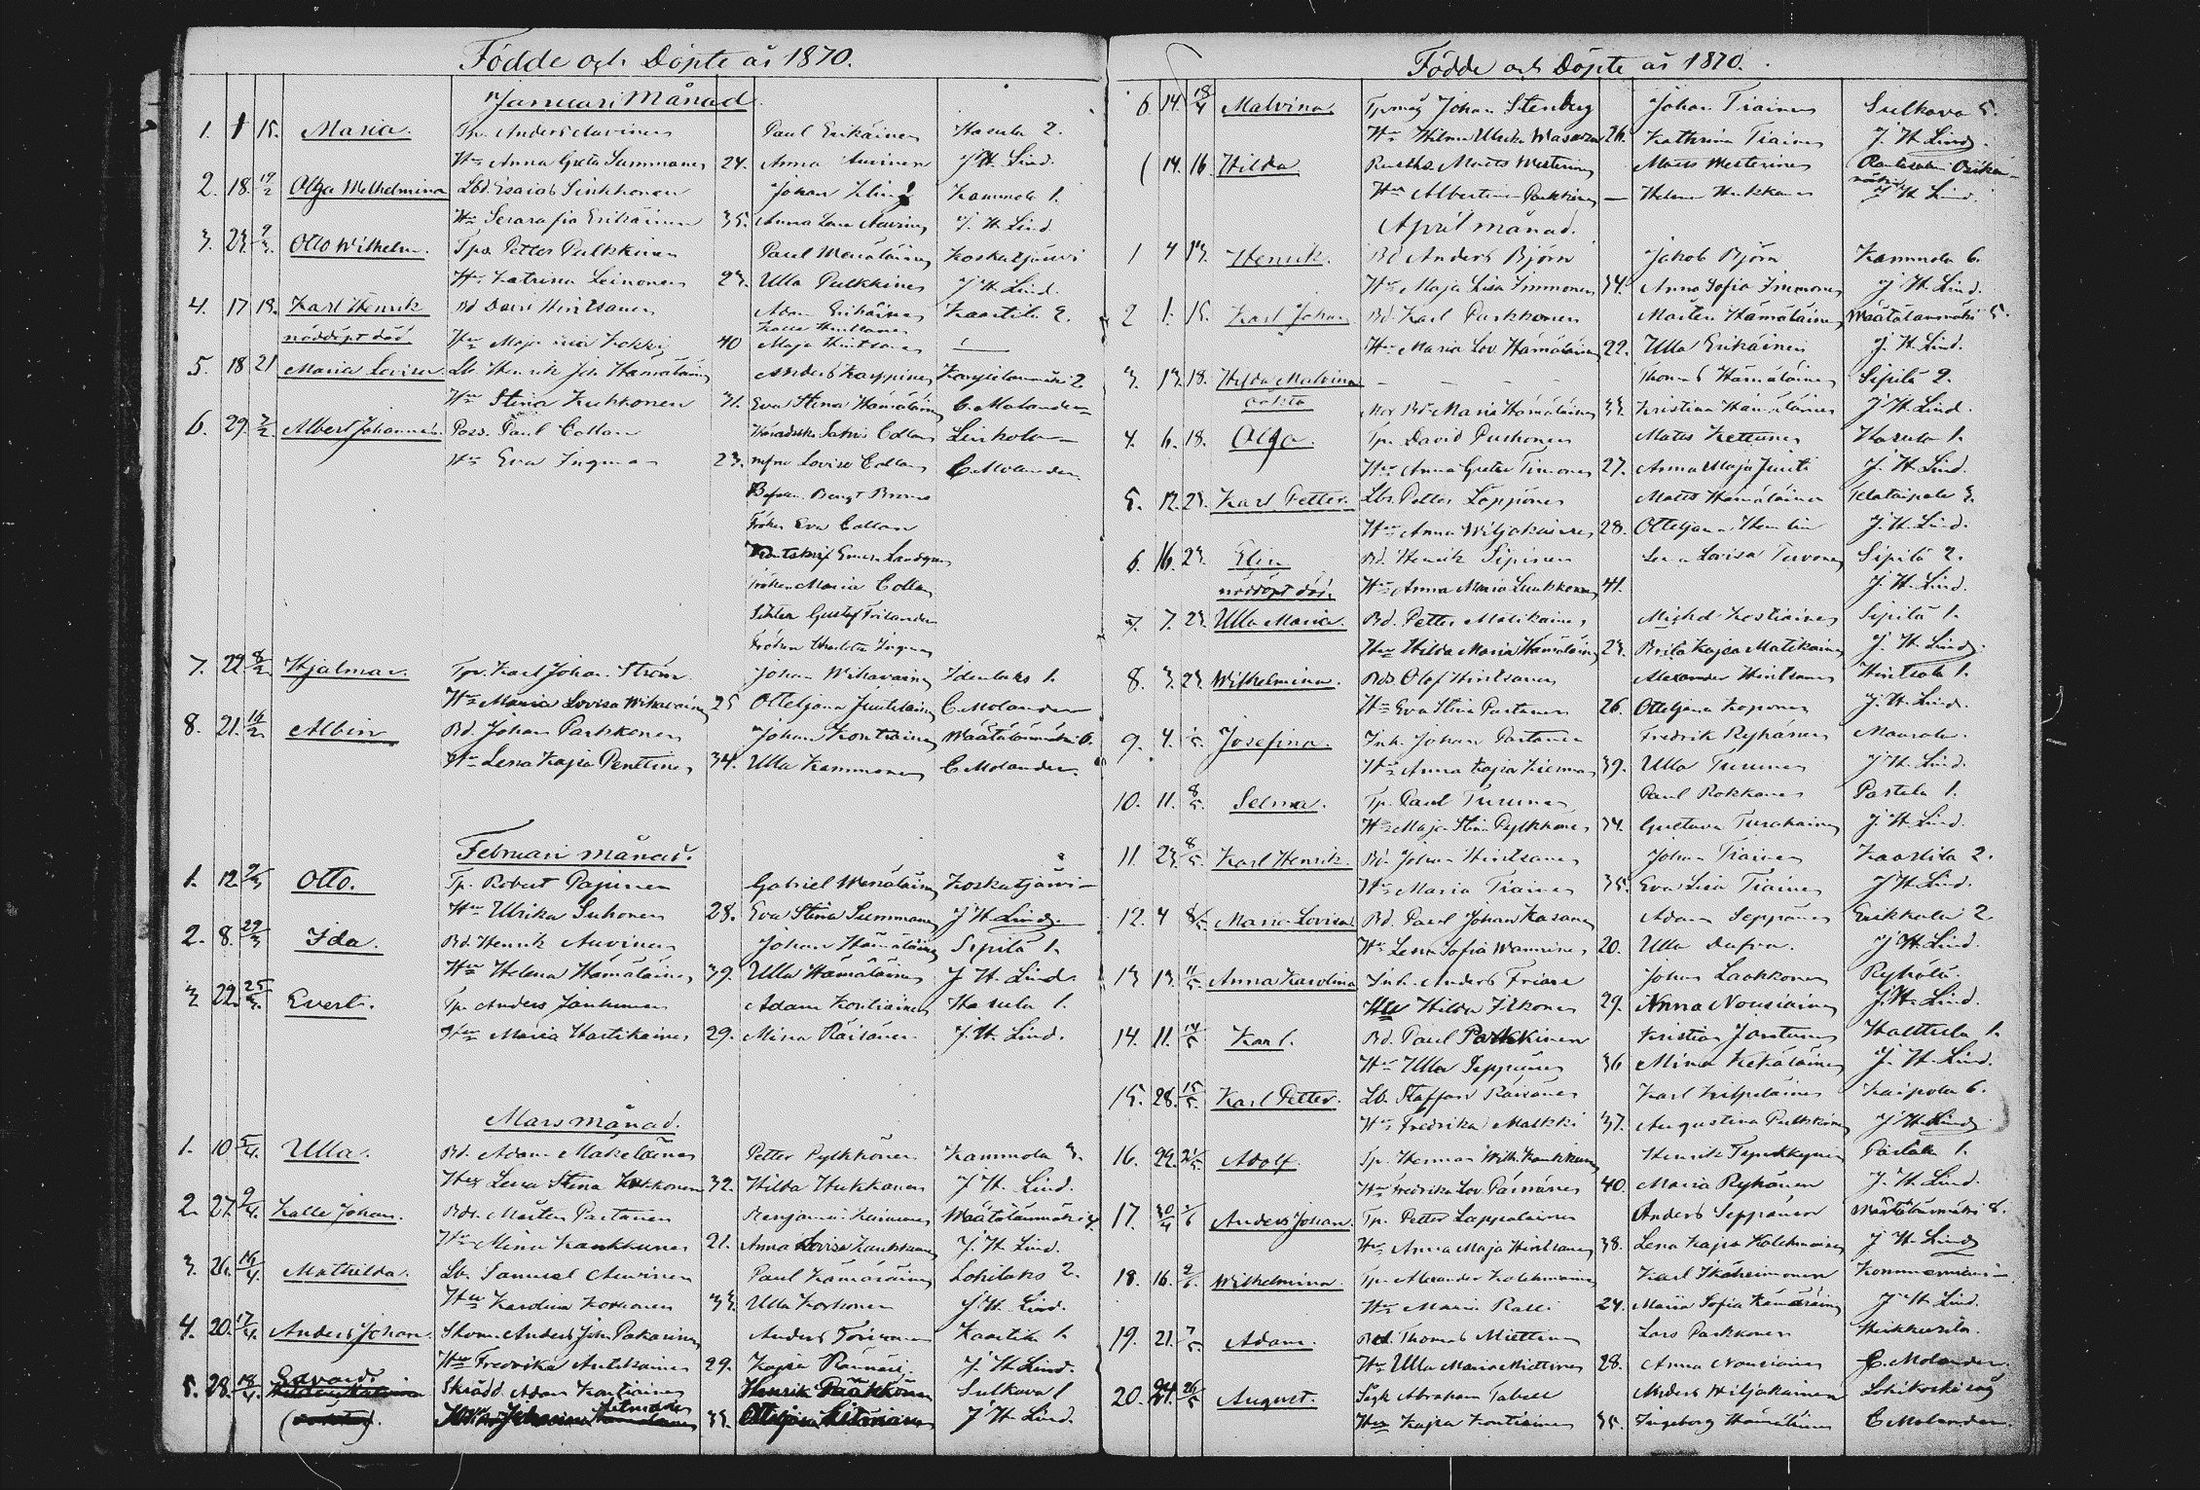 Födde och Döpte år 1870.
Januari Månad.
1. 1 15. Maria. Tp. Anders Auvinen Paul Erikäinen Hasula 2.
Hu Anna Greta Summanen 24. Anna Auvinen J. H. Lind.
2. 18. Olga Wilhelmina Lbd. Esaias Sinkkonen Johan Kammola 1.
Hu Serafia Erikäinen 35. Anna Lena J. H. Lind.
3. 23. Otto Wilhelm. Petter Pulkkinen Paul Koskutjärvi
Hu Katrina Leinonen 23. Ulla Pulkkinen J. H. Lind.
4. 17 18. Karl Henrik Bd Hintsanen Adam Erikäinen Kaartila 2.
Kalle Hintsanen
nöddöpt död Hu Maja 40 Maja Hintsanen
5. 18 21 Maria Lovisa Lb. Henrik Joh. Hämäläinen Anders Karppinen 2
Hu Stina Kukkonen 31. Eva Stina Hämäläinen C. Molander
6. 29. Albert Johannes. Poss. Paul Collan Collan
Hu Eva Ingman 23. Lovisa Collan C. Molander
Bengt
Fröken Eva Collan
fröken Maria Collan
Gustaf
Fröken Ingman
7. 22. 8/2 Hjalmar. Tp. Karl Johan Ström Johan Wihavainen Idenlaks 1.
Hu Maria Lovisa Wihavainen 25 Otteljana C. Molander
8. 21. 16/2 Albin Bd. Johan Parkkonen Johan Kontiainen Määtälänmäki 6.
Hu Lena Kajsa Penttinen 34. Ulla Kammonen C. Molander.
Februari månad.
1. 12. Otto. Tp. Robert Papinen Gabriel Koskutjärvi
Hu Ulrika Suhonen 28. Eva Stina Summanen J. H. Lind
2. 8. Ida. Bd. Henrik Auvinen Johan Hämäläinen Sipilä 1.
Hu Helena Hämäläinen 39. Ulla Hämäläinen J. H. Lind.
3 22. 25/3. Evert. Tp. Anders Janhunen Adam Kontiainen Hasula 1.
Hu Maria Hartikainen 29. Mina Räisänen J. H. Lind.
Mars månad.
1. 10 5/4. Ulla. Bd. Adam Mäkeläinen Petter Pylkkönen Kammola 3.
Hu Lena Stina 32. Hilda Hukkanen J. H. Lind.
2. 27. 9/4. Kalle Johan. Bds. Mårten Partanen Benjamin Määtälänmäki
Hu Mina Kankkunen 21. Anna Lovisa Kankkunen J. H. Lind.
3. 26. 16/4. Mathilda. Lb. Samuel Auvinen Paul Kämäräinen Lohilaks 2.
Hu Karolina Korhonen 33. Ulla Korhonen J. H. Lind.
4. 20. 17/4. Anders Johan. Anders Joh. Pakarinen Anders Kaartila 1.
Hu Fredrika Antikainen 29. Kajsa Räinäsi. J. H. Lind.
5. 28. 18/4. Edvard Skrädd. Adam Kontiainen Henrik Pääkkönen Sulkava 1
33. J. H. Lind.
Födde och Döpte år 1870.
6. 14. 18/4 Malvina Johan Stenberg Johan Tiainen Sulkava 5.
Hu 26. Kathrina Tiainen J. H. Lind.
14. 16 Hilda Mats Westerinen Mats Westerinen Rantasalmi
Hu Albertina Parkkinen — Helena Hukkanen J. H. Lind.
April månad.
1 4 Henrik. Bd Anders Björn Jakob Björn Kammola 6.
Hu Maja Lisa Immonen 34. Anna Sofia Immonen J. H. Lind.
2 1. 15. Karl Johan Bd. Karl Parkkonen Mårten Hämäläinen Määtälänmäki 5.
Hu Maria Lov. Hämäläinen 22. Ulla Erikäinen J. H. Lind.
3. 13. 18. Hilda Malvina Thomas Hämäläinen Sipilä 2.
oäkta Bd. Maria Hämäläinen 33 Kristina Hämäläinen J. H. Lind.
4. 6. 18. Olga. Tp. David Puhonen Mats Kettunen Hasula 1.
Hu Anna Greta Timonen 27. Anna Maja J. H. Lind.
5. 12. 23. Karl Petter. Lbs. Petter Loppönen Mats Hämäläinen Telataipale 3.
Hu Anna Wiljakainen 28. Otteljana J. H. Lind.
6. 16. 23. Elin Bd. Henrik Sipinen Lovisa Turvonen Sipilä 2.
nöddöpt död. Hu Anna Maria Luukkonen 41. J. H. Lind.
7. 7. 23. Ulla Maria. Bd. Petter Matikainen Michel Kostiainen Sipilä 1.
Hu Hilda Maria Hämäläinen 23. Brita Kajsa Matikainen J. H. Lind.
8. 3. 23. Wilhelmina. Bds. Olof Hintsanen Alexander Hintsanen Hintsala 1.
Hu Eva Stina Partanen 26. Otteljana Koponen J. H. Lind.
9. 4. Josefina. Inh. Johan Partanen Fredrik Ryhänen
Hu Anna Kajsa 39. Ulla Turunen J. H. Lind.
10. 11. 8/5. Selma. Tp. Paul Turunen Paul Rokkanen Partala 1.
Hu Maja Stina Pylkkönen 34. Gustava Turakainen J. H. Lind.
11. 23. 8/5. Karl Henrik. Bd. Johan Hintsanen Johan Tiainen Kaartila 2.
Hu Maria Tiainen 35. Eva Lisa Tiainen J. H. Lind.
12. 4 8/5. Maria Lovisa Bd. Paul Johan Kasanen Adam Seppänen Erikkala 2.
Hu Lena Sofia Wanninen 20. Ulla Dufva. J. H. Lind.
13 13. 11/5. Anna Karolina Inh. Anders Friare Johan Laakkonen Ryhälä.
Hu Hilda Ikonen 29. Anna Nousiainen J. H. Lind.
14. 11. 14/5 Karl. Bd. Paul Parkkinen Kristian Halttula 1.
Hu Ulla Seppänen 36 Mina Kekäläinen J. H. Lind.
15. 28. 15/5. Karl Petter. Lb. Staffan Räisänen Karl Kilpeläinen Kaipola 6.
Hu Fredrika Malkki 37. Augustina Pulkkinen J. H. Lind
16. 22. 21/5. Adolf. Sp. Herman Wilh. Kankkunen Henrik Tynkkynen Partala 1.
Hu Fredrika Lov. Parnänen 40. Maria Ryhänen J. H. Lind.
17. 30/4 Anders Johan. Tp. Petter Lappalainen Anders Seppänen Määtälänmäki 8.
Hu Anna Maja Hintsanen 38. Lena Kajsa Kolehmainen J. H. Lind
18. 16. Wilhelmina. Tp. Alexander Kolehmainen Karl Ikäheimonen Kommerniemi
Hu Maria Ralli 24. Maria Sofia Kämäräinen J. H. Lind.
19. 21. Adam. Bd. Thomas Miettinen Lars Parkkonen Heikkurila.
Hu Ulla Maria Miettinen 28. Anna Nousiainen C. Molander.
20. August. Abraham Tabell Anders Wiljakainen Lohikoski såg
Hu Kajsa Kontiainen 35. Ingeborg Hämäläinen C. Molander.